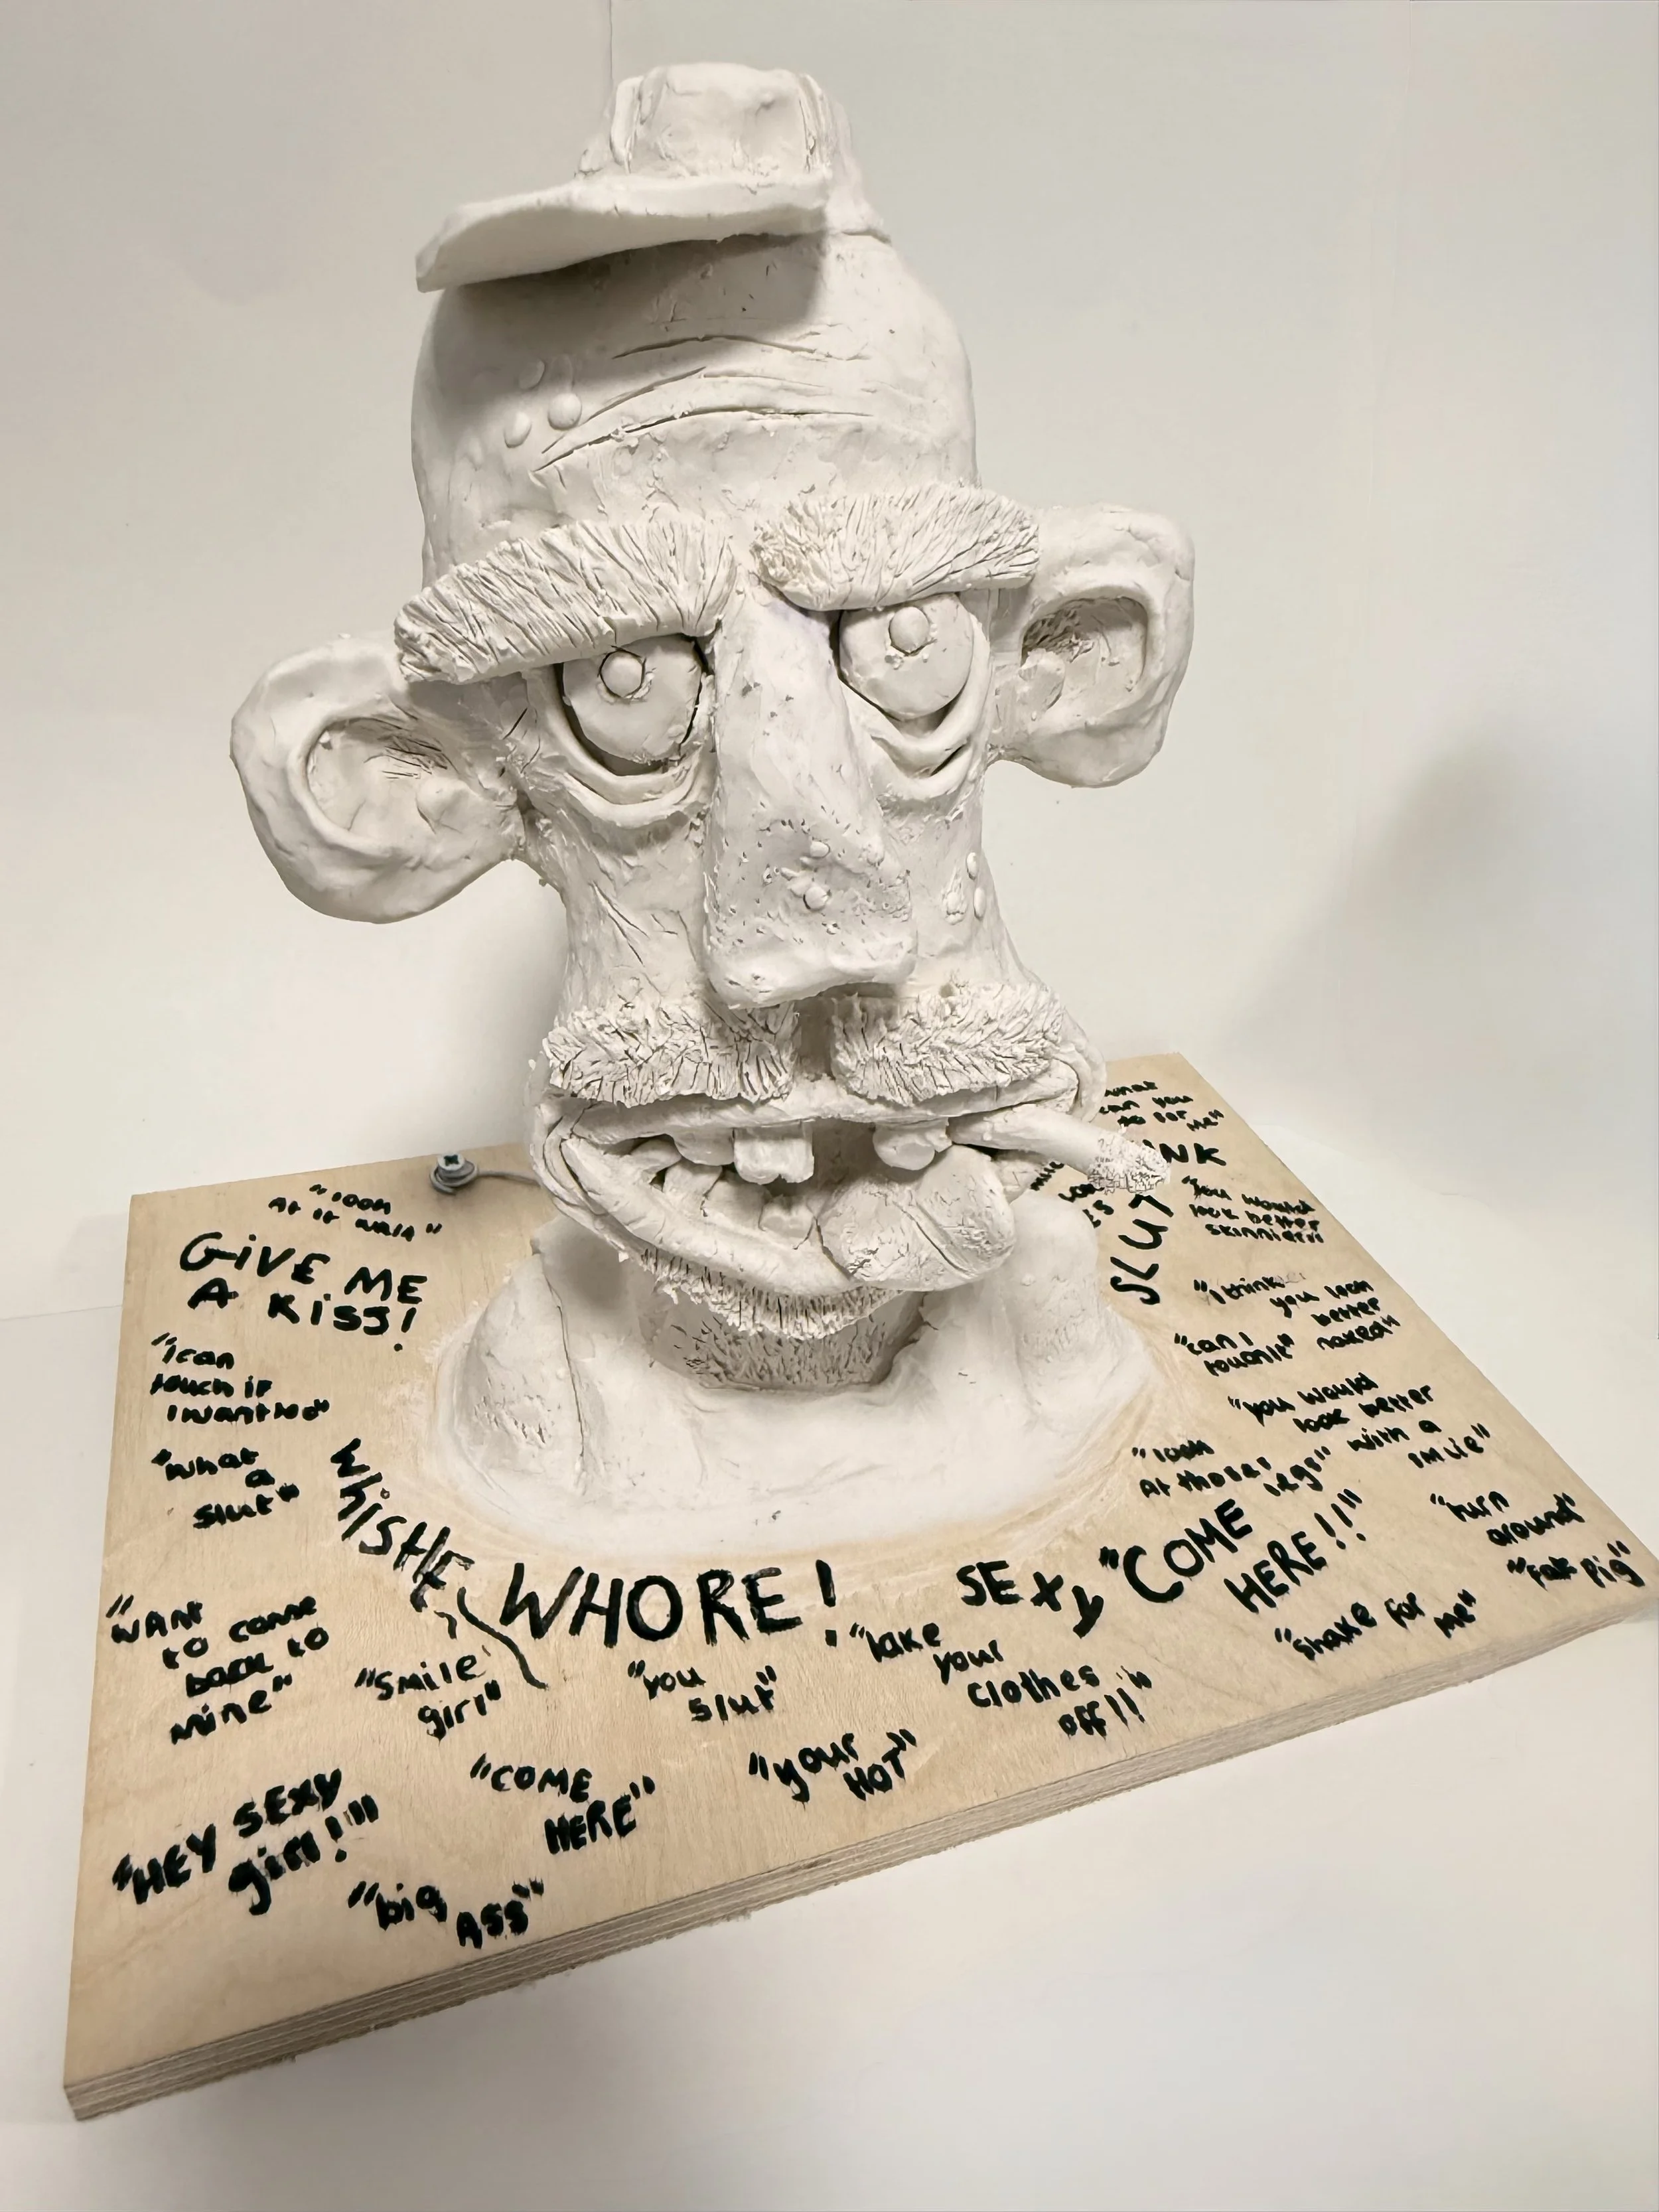 "look
At it walk"
GiVE ME
A KiSS!
"ican
touch if
iwanted"
"what
a
slut"
WHISHE
"WANT
to come
back to
mine"
"smile
girl"
"HEY SEXY
girl!"
"big
ASS"
"COME
HERE"
WHORE!
"you
slut"
"your
HOT"
"Take
your
clothes
off!!"
SEXy
"COME
HERE!!"
"shake for
me"
"turn
around"
"fat pig"
"look
At those
legs"
"you would
look better
with a
smile"
"can i
touch it"
"i think
you look
better
naked"
SLUT
"You would
look better
skinnier"
what
can you
do for
me"